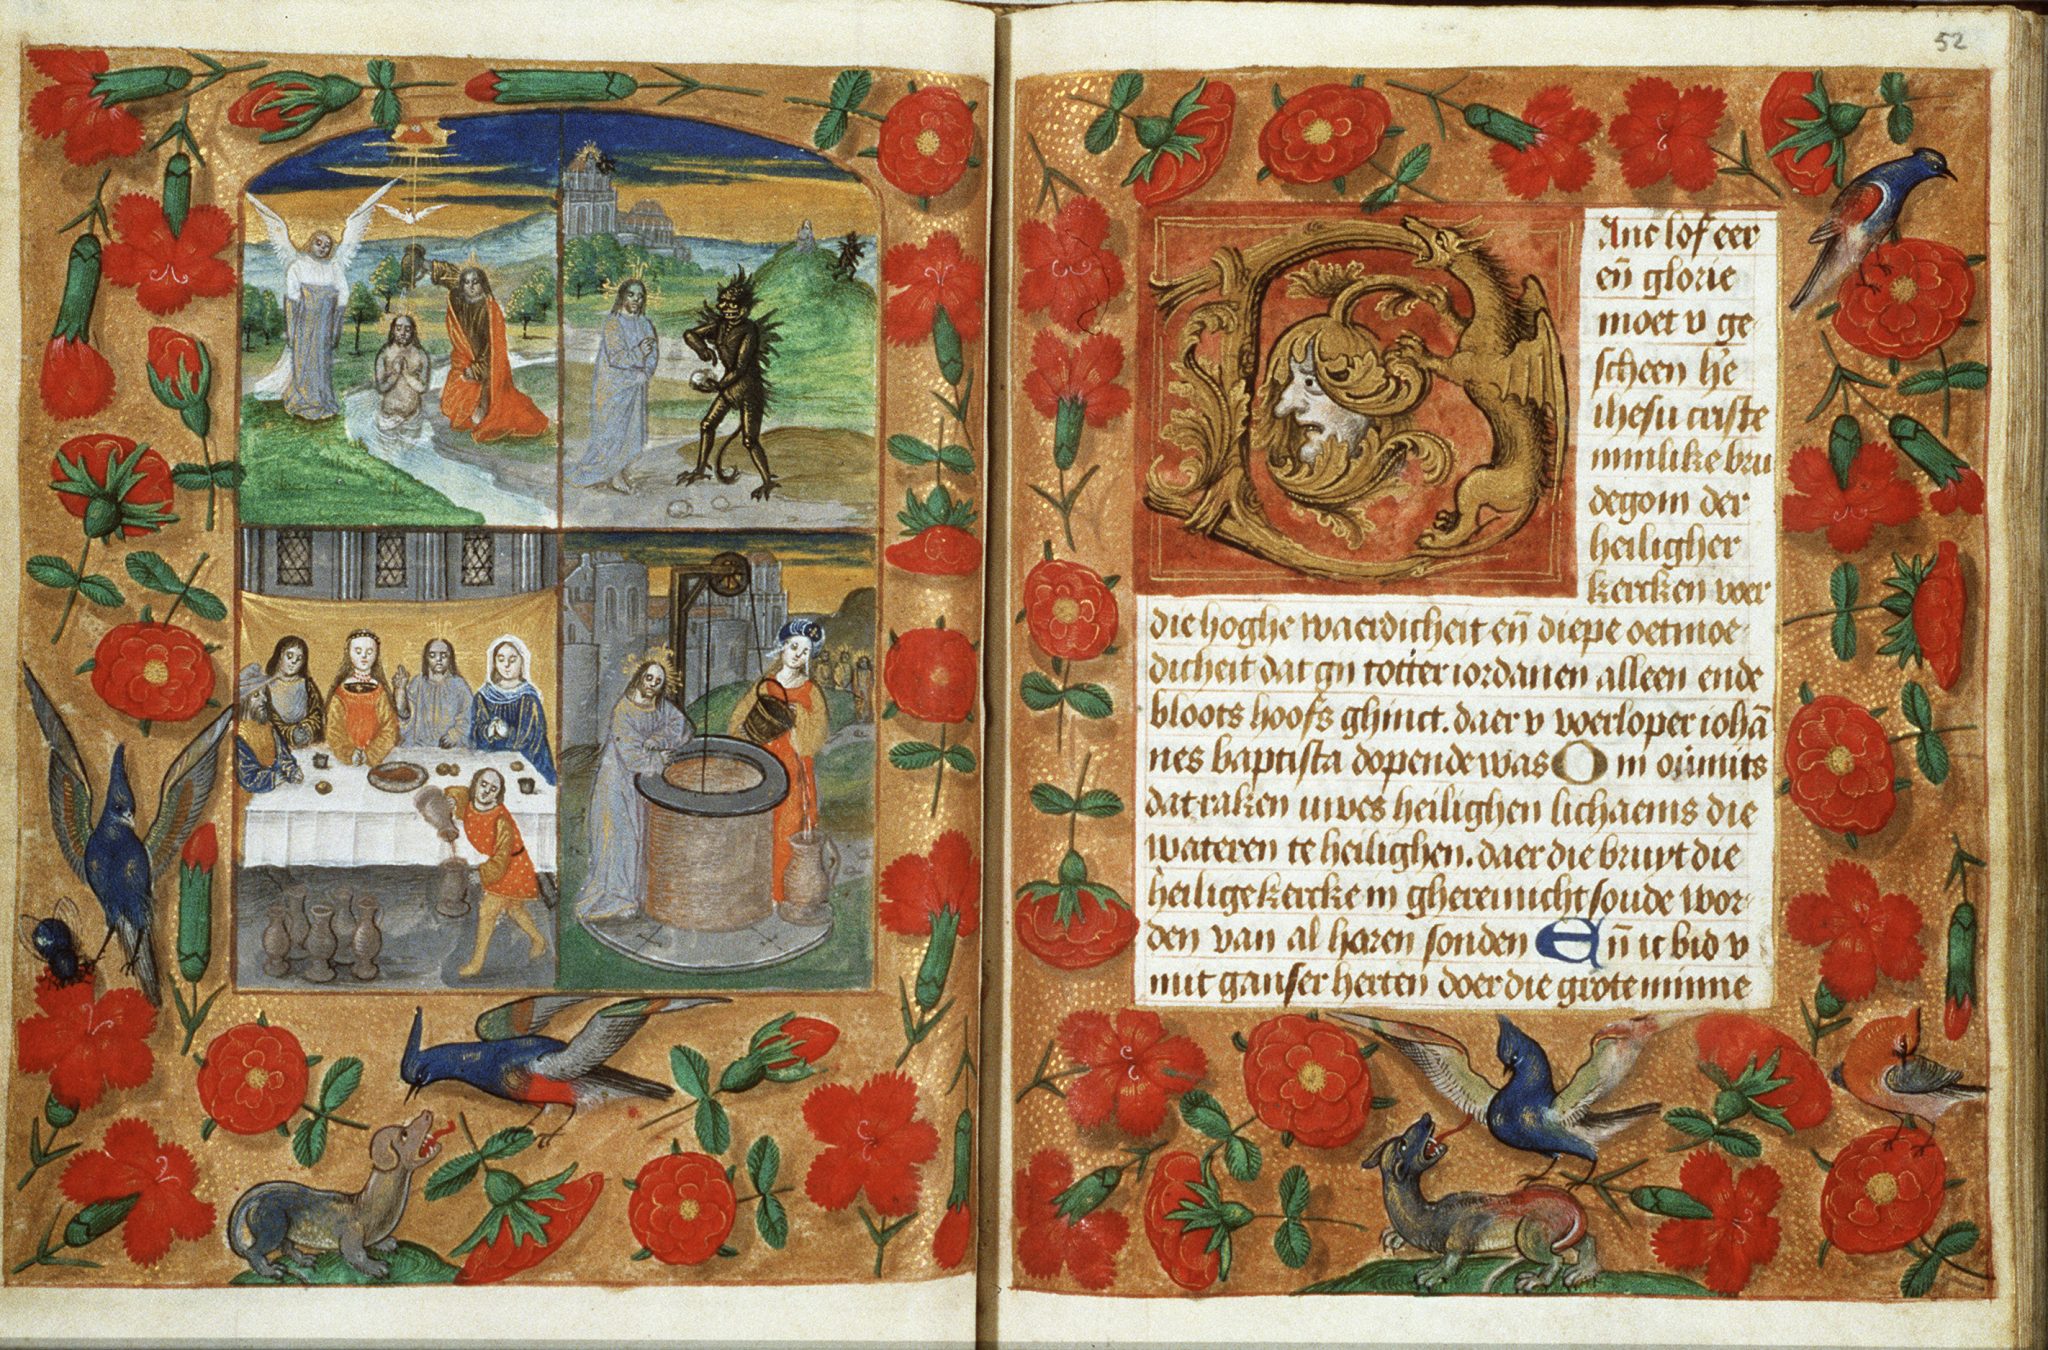 52
Danc lof eer
eñ glorie
moet v ge-
scheen he
ihesu criste
minlike bru
degom der
heiligher
kercken voer
die hoghe waerdicheit eñ diepe oetmoe-
dicheit dat gij totter iordanen alleen ende
bloots hoofs ghinct. daer v voerloper iohã
nes baptista dopende was On oũmits
dat raken uwes heilighen lichaems die
wateren te heilighen. daer die bruyt die
heilige kercke in ghereinicht soude wor-
den van al haren sonden Eñ ic bid v
mit ganser herten doer die grote minne